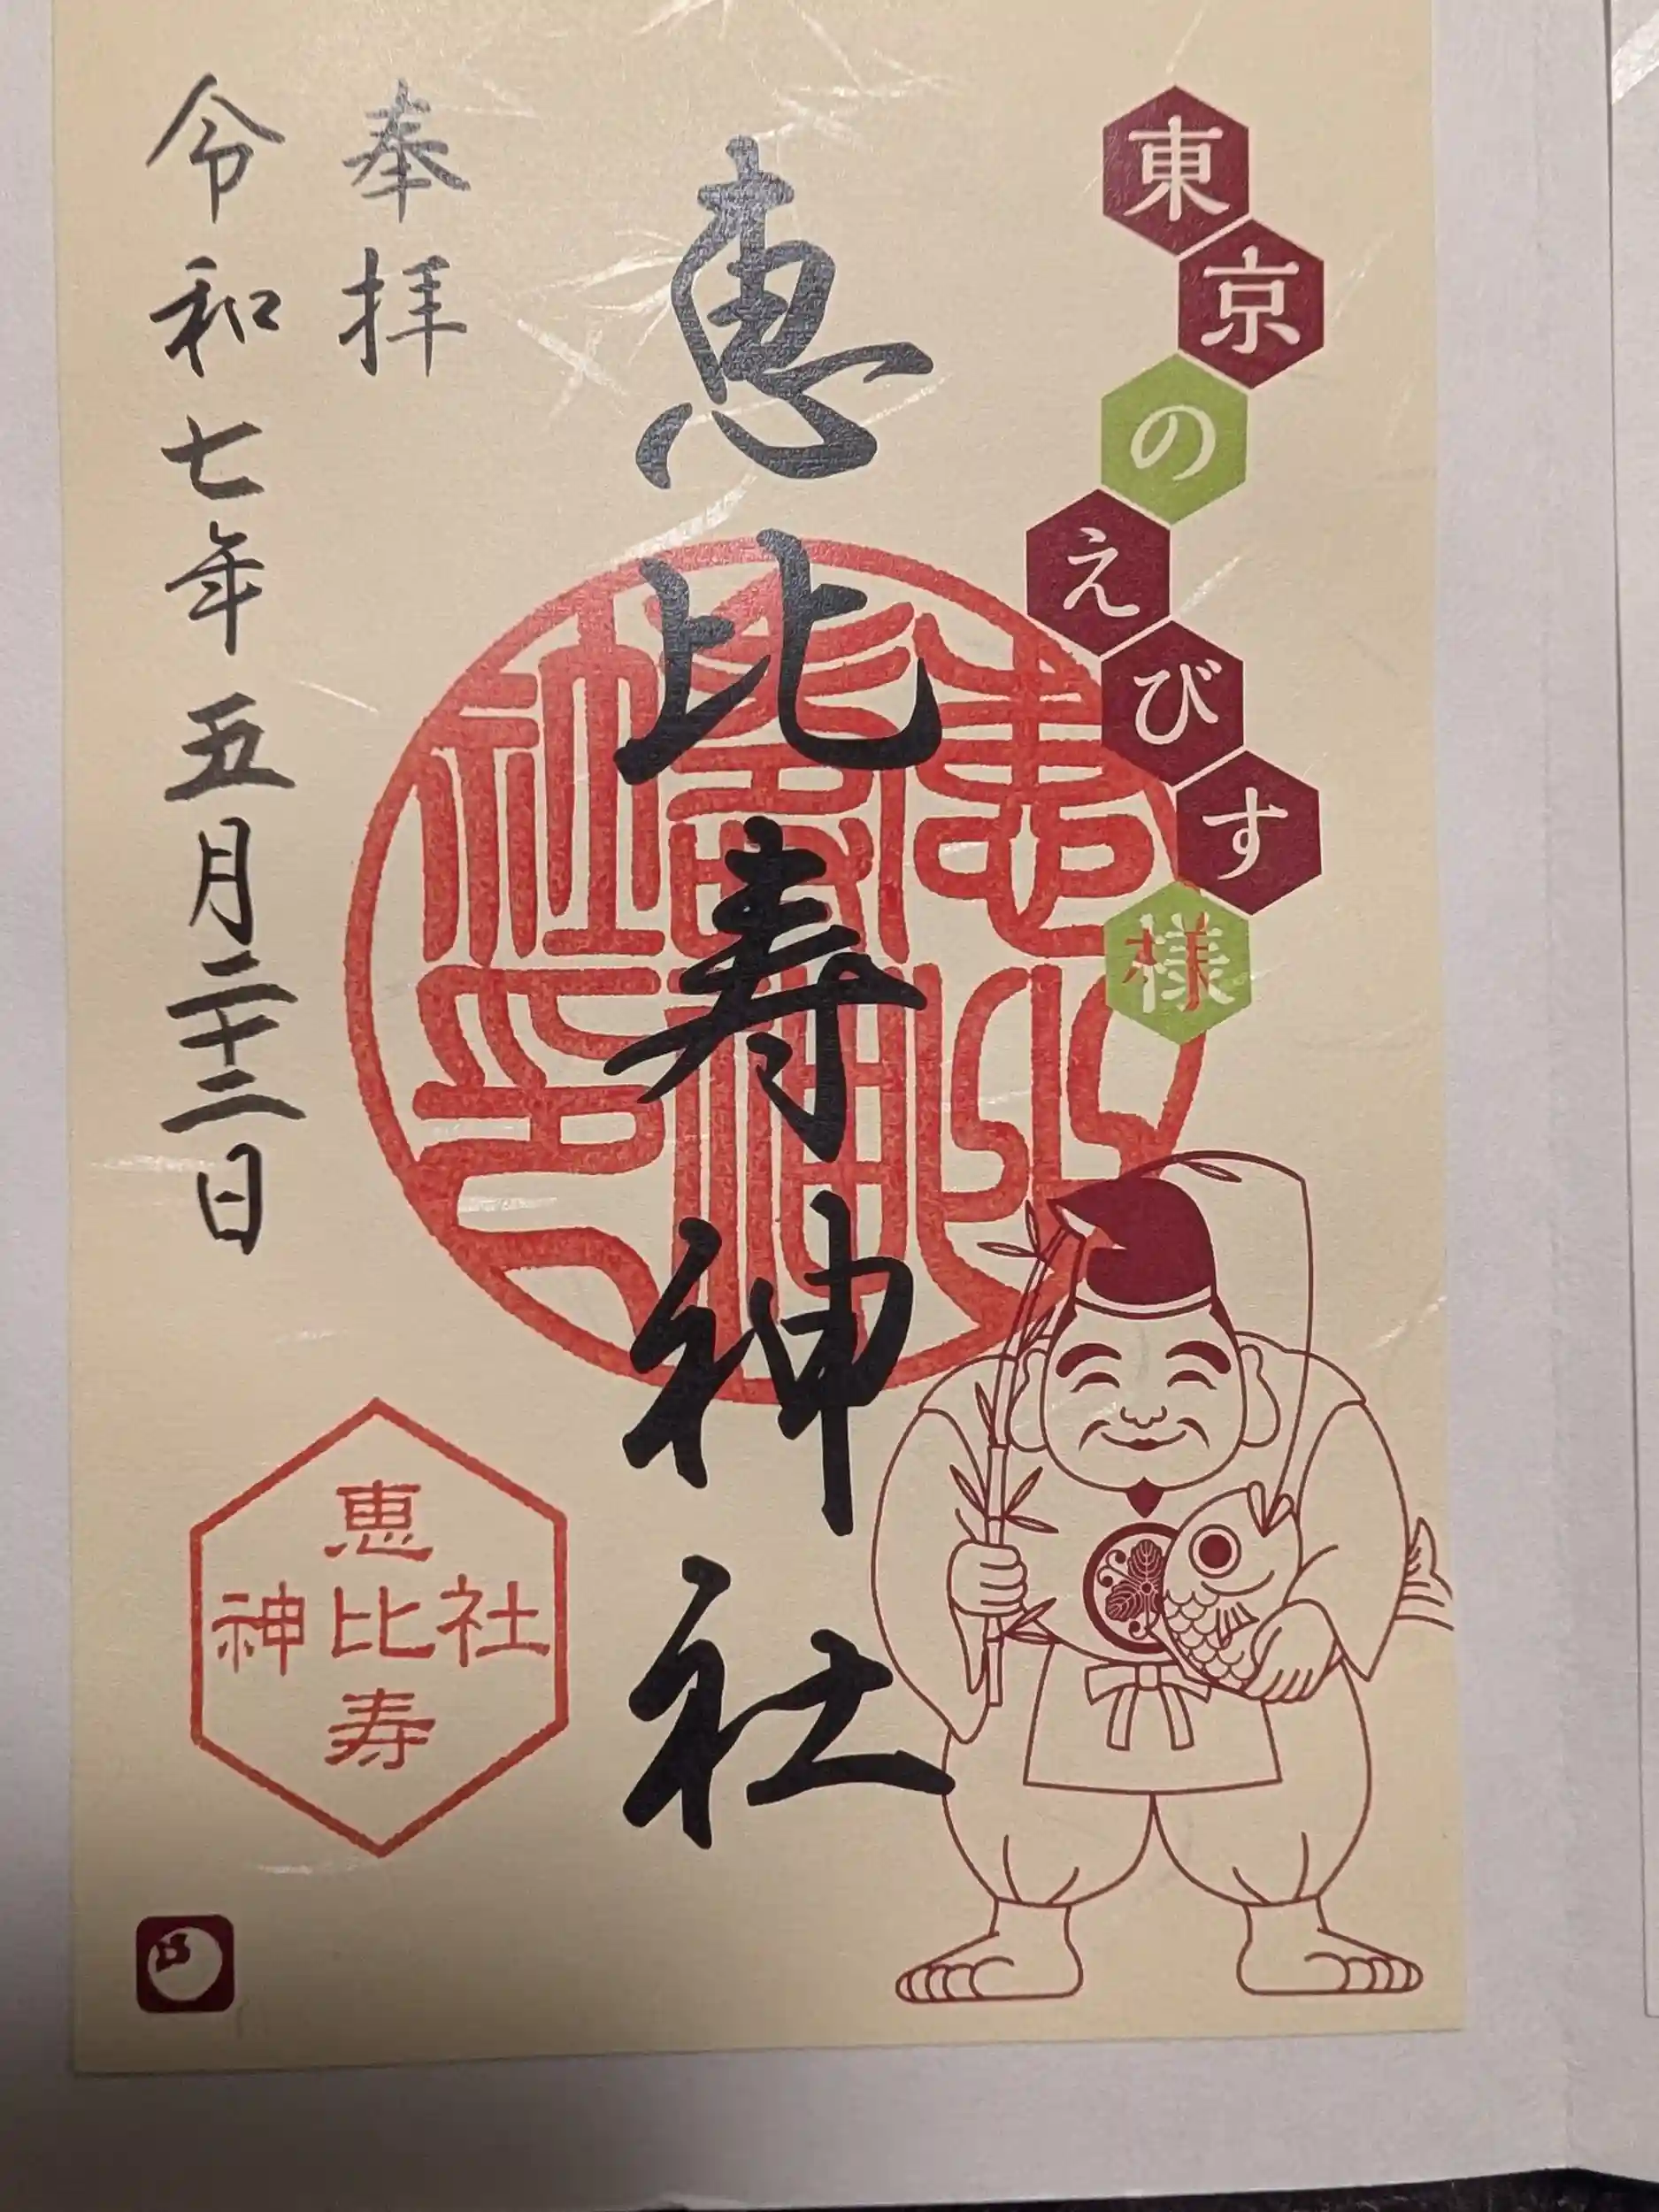 東京のえびす様
恵比寿神社
奉拝
令和七年五月二十二日
恵比寿
神社